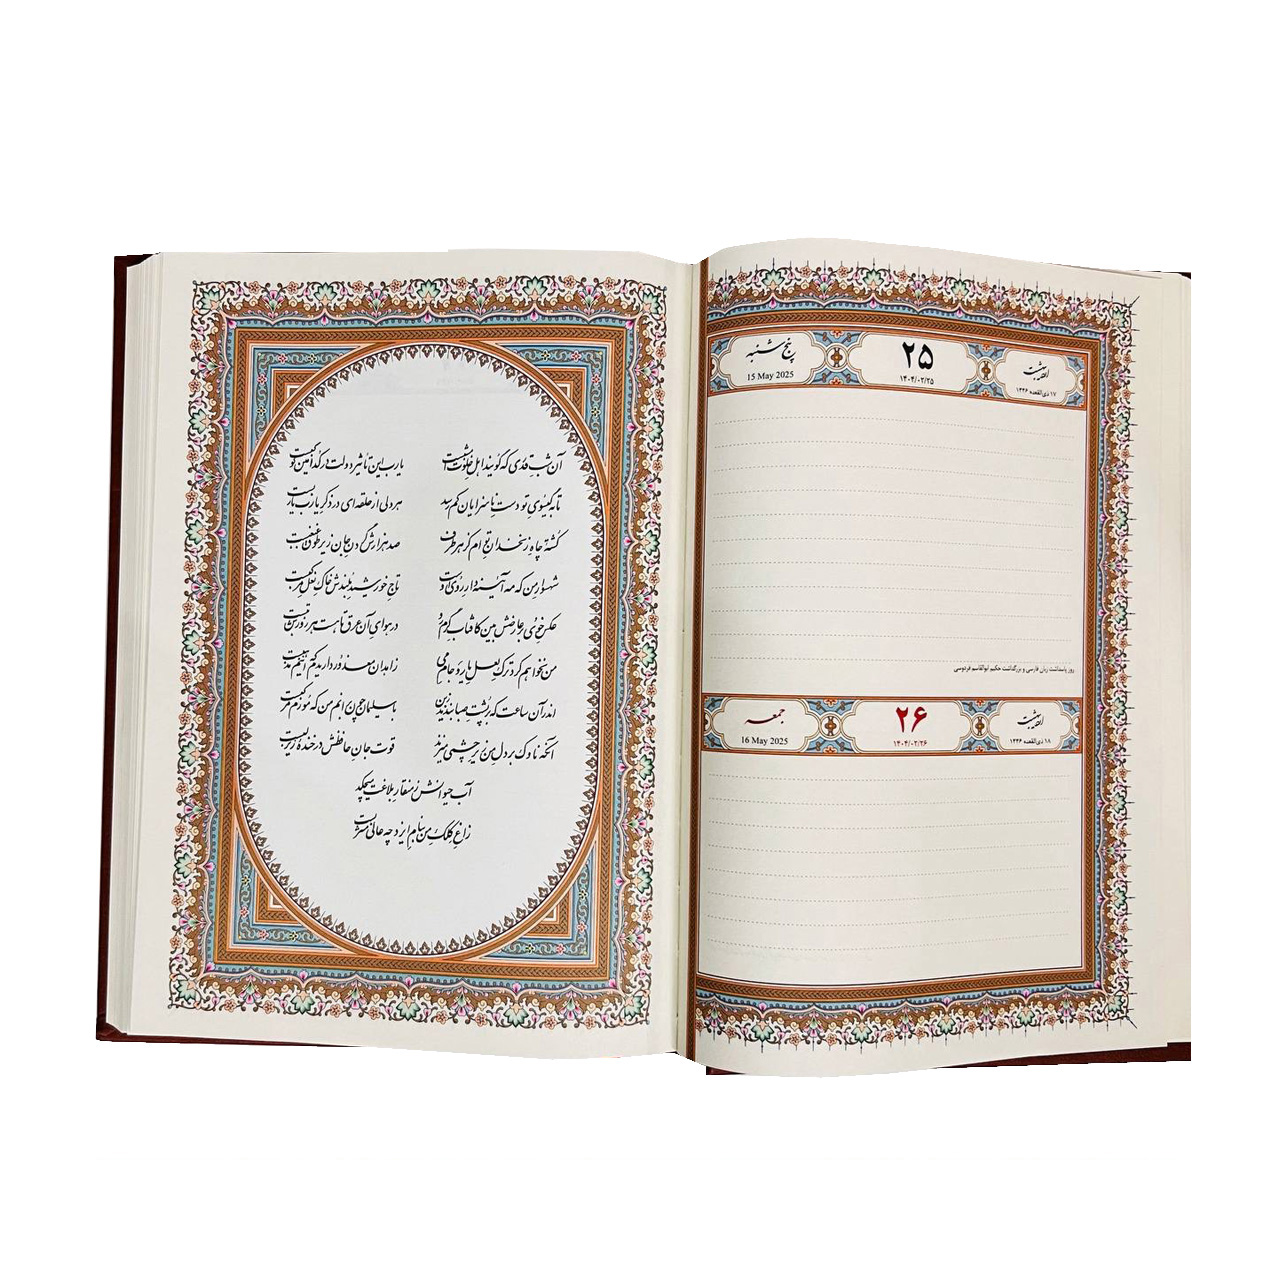 اردیبهشت
۱۷ ذی‌القعده ۱۴۴۶
۲۵
۱۴۰۴/۰۲/۲۵
پنج شنبه
15 May 2025
روز پاسداشت زبان فارسی و بزرگداشت حکیم ابوالقاسم فردوسی
اردیبهشت
۱۸ ذی‌القعده ۱۴۴۶
۲۶
۱۴۰۴/۰۲/۲۶
جمعه
16 May 2025
آن شبِ قدری که گویند اهلِ خلوت امشب است یارب این تاثیر دولت در کدامین کوکب است
تا به گیسویِ تو دستِ ناسزایان کم رسد هر دلی از حلقه‌ای در ذکرِ یارب یارب است
کشتهٔ چاهِ زنخدانِ توام کز هر طرف صد هزارش گردنِ جان زیرِ طوقِ غبغب است
شهسوارِ من که مه آیینه‌دارِ رویِ اوست تاجِ خورشیدِ بلندش خاکِ نعلِ مرکب است
عکسِ خوی بر عارضش بین کافتابِ گرم رو در هوای آن عرق تا هست هر روزش تب است
من نخواهم کرد ترکِ لعلِ یار و جامِ می زاهدان معذور داریدم که اینم مذهب است
اندر آن ساعت که بر پشتِ صبا بندند زین با سلیمان چون برانم من که مورم مرکب است
آنکه ناوک بر دلِ من زیر چشمی می‌زند قوت جان حافظش در خندهٔ زیر لب است
آب حیوانش ز منقارِ بلاغت می‌چکد
زاغِ کلکِ من بنام ایزد چه عالی مشرب است